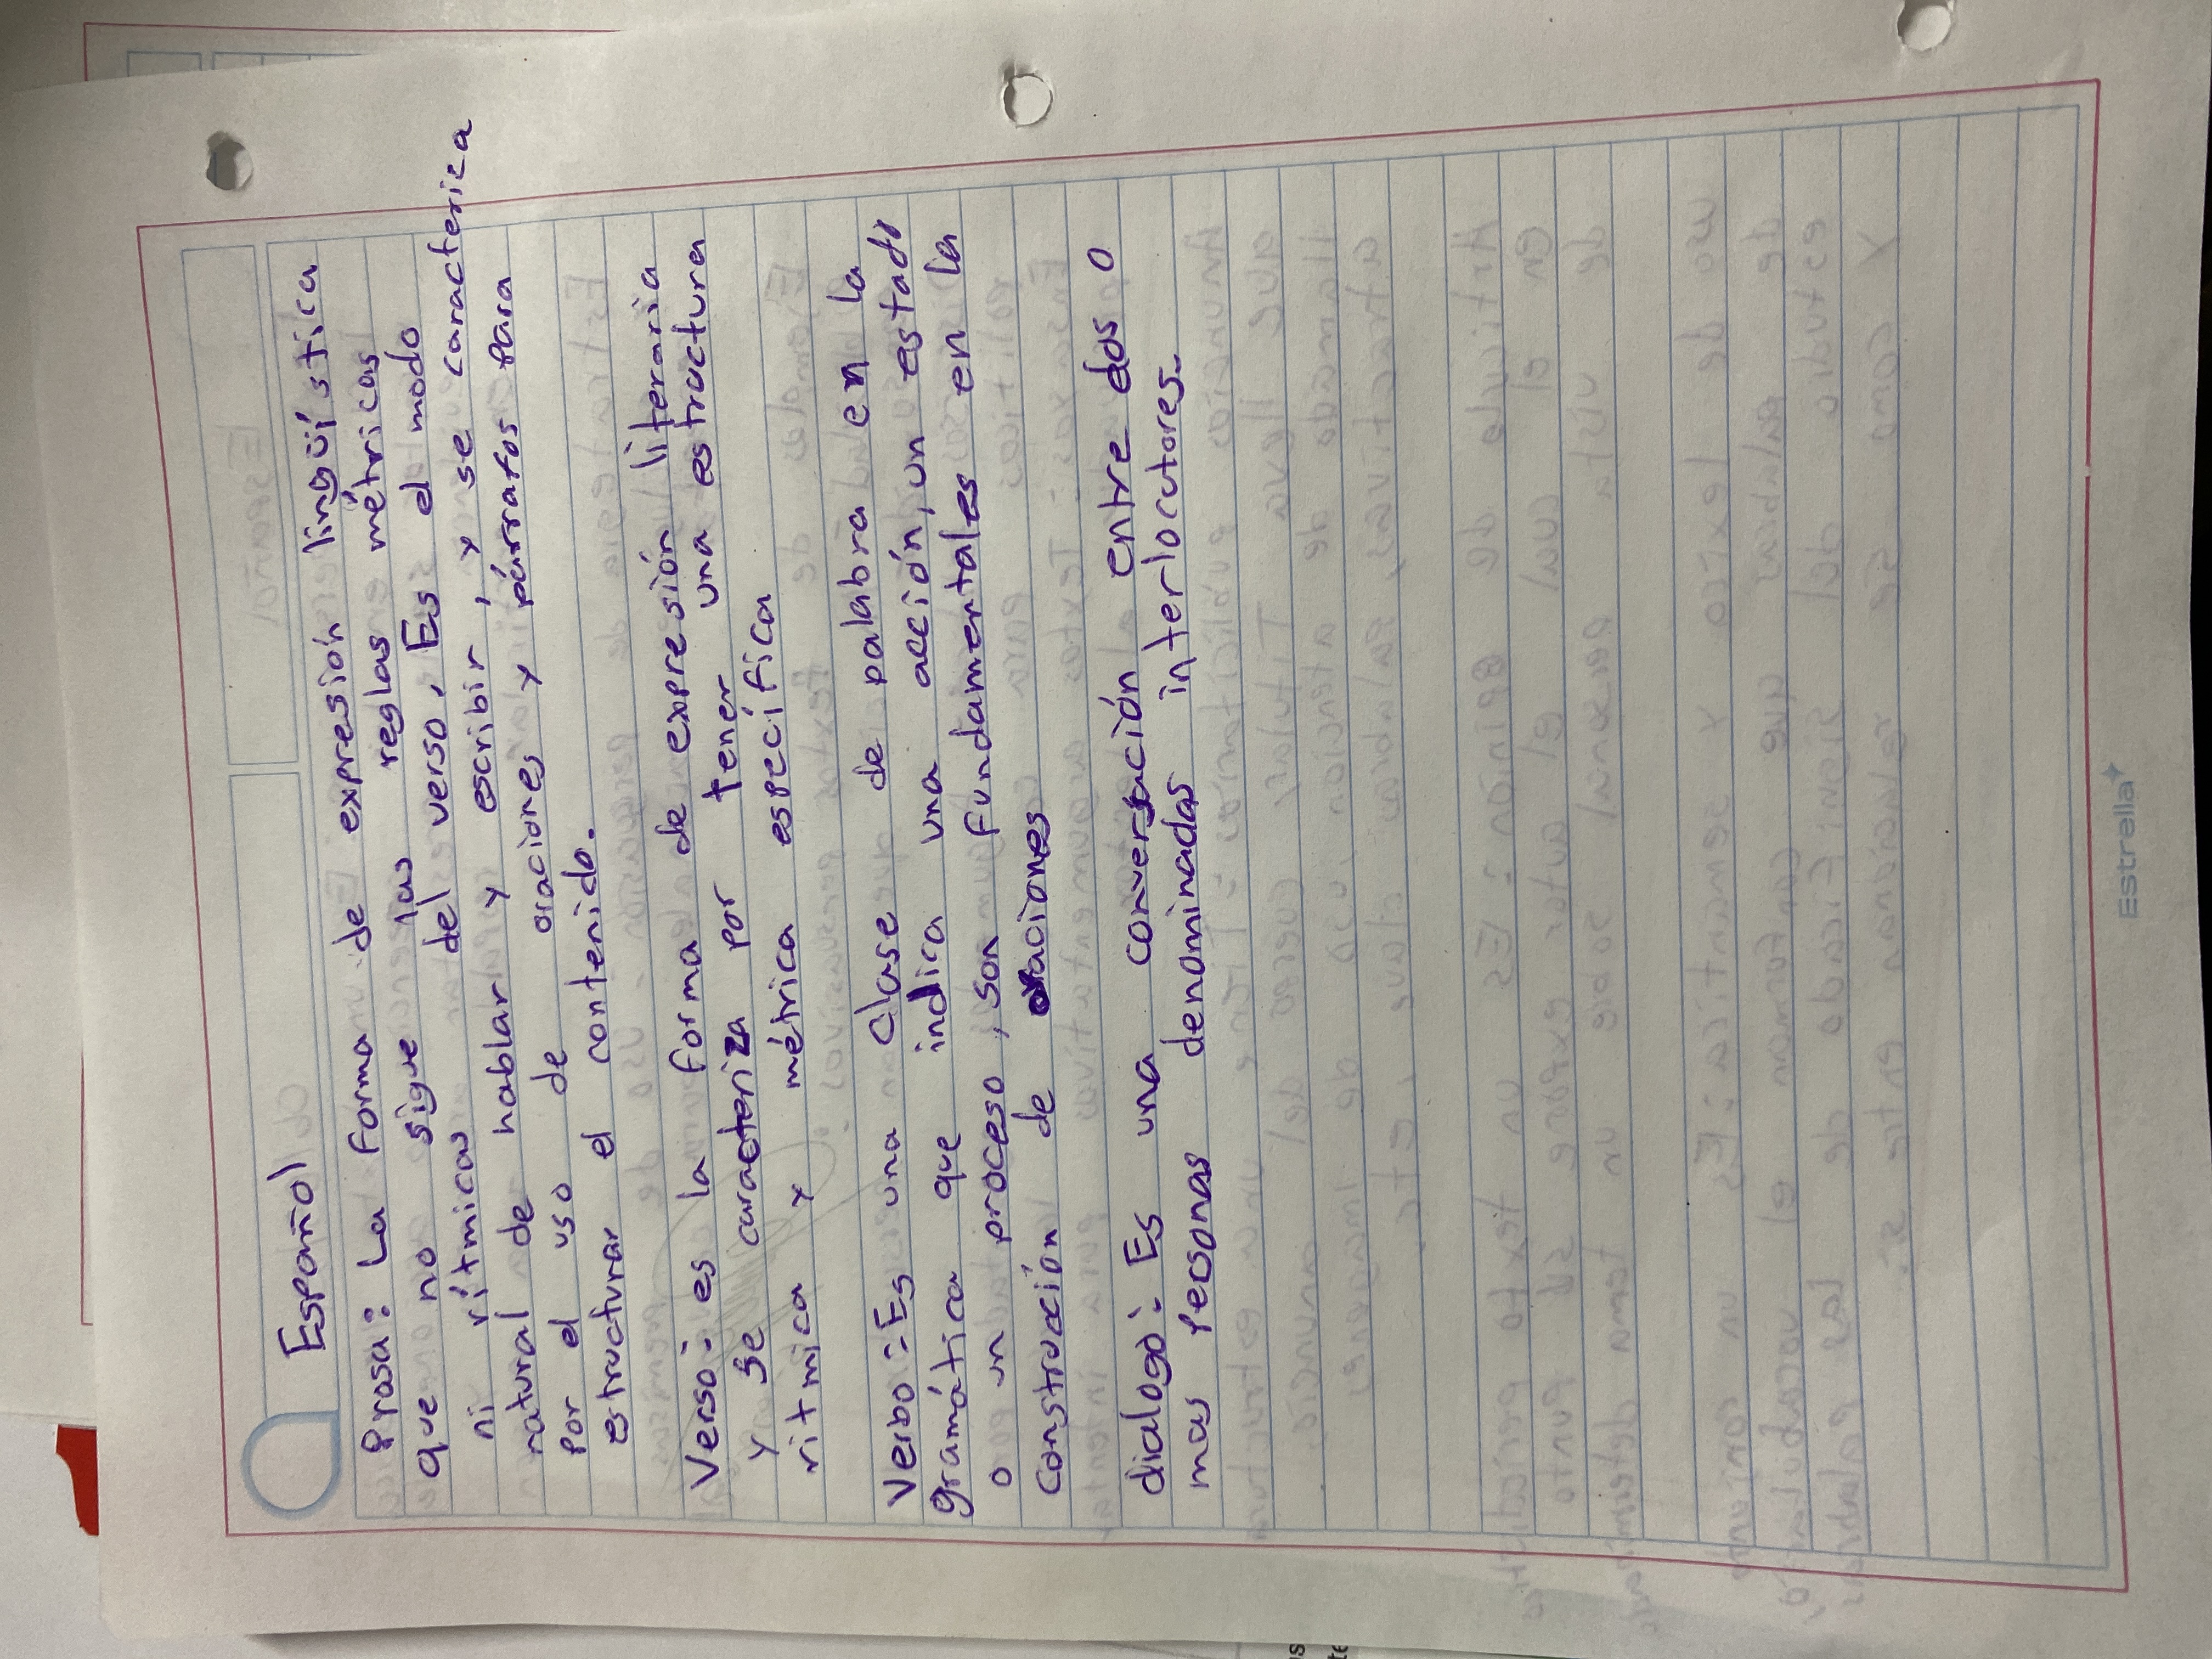 Español
Prosa: La forma de expresión lingüística
que no sigue las reglas métricas
ni rítmicas del verso, Es el modo
natural de hablar y escribir, y se caracterica
por el uso de oraciones y párrafos para
estructurar el contenido.
Verso: es la forma de expresión literaria
y se caracteriza por tener una estructura
ritmica y métrica específica
Verbo: Es una clase de palabra en la
gramática que indica una acción, un estado
o un proceso, son fundamentales en la
construcción de oraciones
dialogo: Es una conversación entre dos o
mas Pesonas denominadas interlocutores.
Estrella